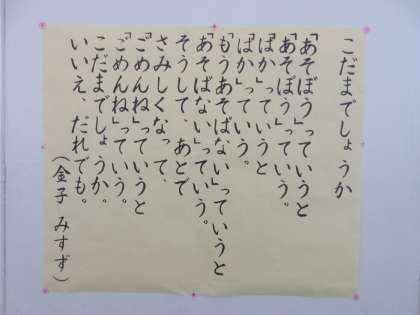 こだまでしょうか
「あそぼう」っていうと
「あそぼう」っていう。
「ばか」っていうと
「ばか」っていう。
「もうあそばない」っていうと
「あそばない」っていう。
そうして、あとで
さみしくなって、
「ごめんね」っていうと
「ごめんね」っていう。
こだまでしょうか。
いいえ、だれでも。
（金子 みすず）